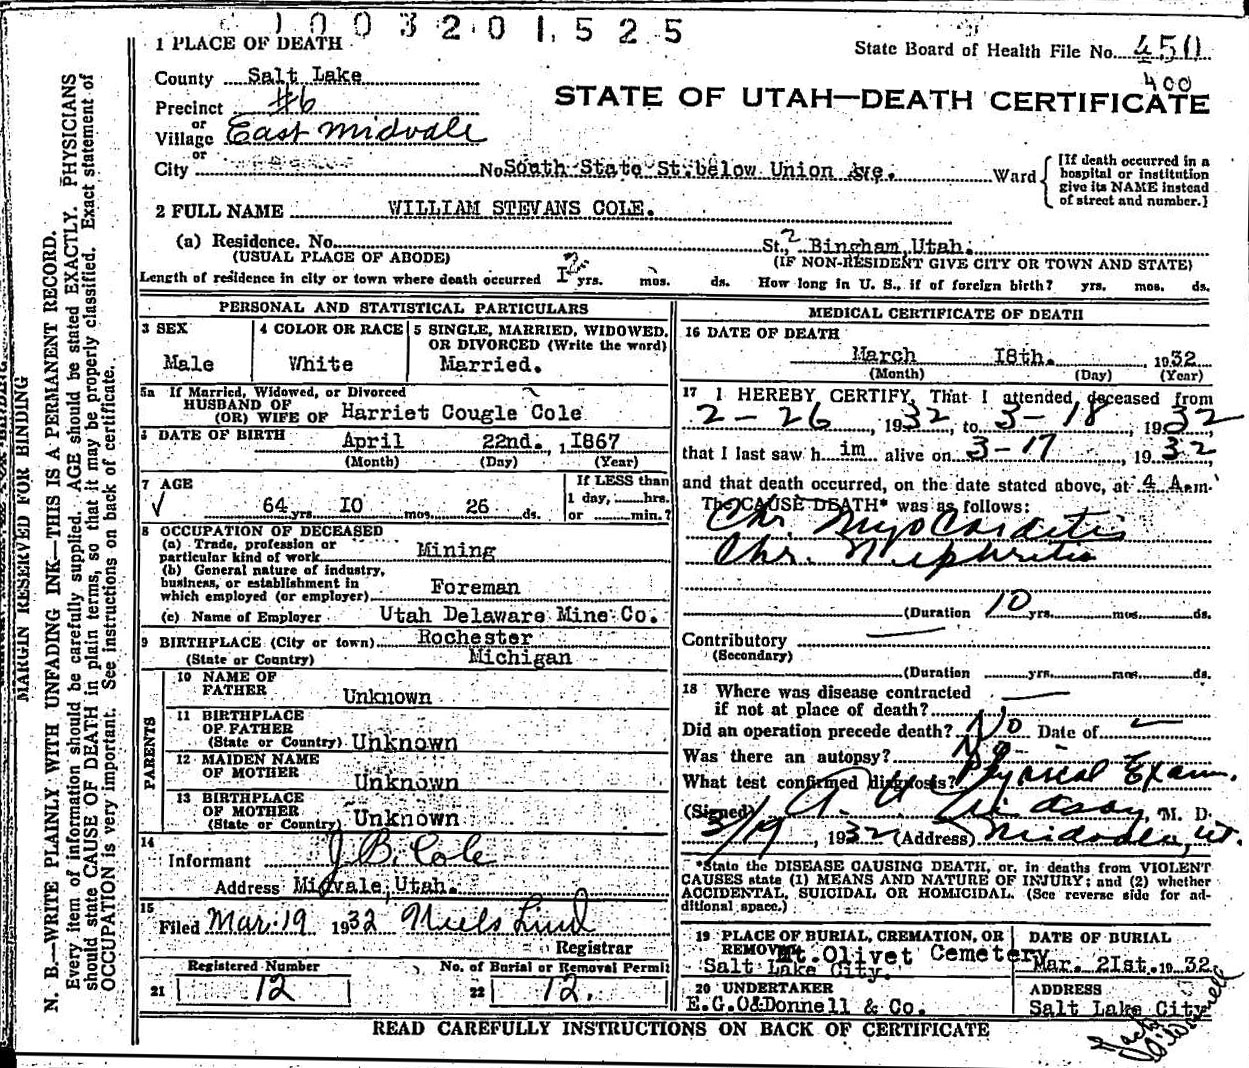 1003201525
1 PLACE OF DEATH
State Board of Health File No. 450
400
County Salt Lake
STATE OF UTAH—DEATH CERTIFICATE
Precinct #6
or
Village East Midvale
or
City No. South State St. below Union Ave. Ward
[If death occurred in a
hospital or institution
give its NAME instead
of street and number.]
2 FULL NAME WILLIAM STEVANS COLE.
(a) Residence. No. St., Bingham, Utah.
(USUAL PLACE OF ABODE) (IF NON-RESIDENT GIVE CITY OR TOWN AND STATE)
Length of residence in city or town where death occurred yrs. mos. ds. How long in U. S., if of foreign birth? yrs. mos. ds.
PERSONAL AND STATISTICAL PARTICULARS
3 SEX 4 COLOR OR RACE 5 SINGLE, MARRIED, WIDOWED,
OR DIVORCED (Write the word)
Male White Married.
5a If Married, Widowed, or Divorced
HUSBAND OF
(OR) WIFE OF Harriet Cougle Cole
6 DATE OF BIRTH April 22nd., 1867
(Month) (Day) (Year)
7 AGE If LESS than
1 day, hrs.
✓ 64 yrs. I0 mos. 26 ds. or min.?
8 OCCUPATION OF DECEASED
(a) Trade, profession or
particular kind of work Mining
(b) General nature of industry,
business, or establishment in
which employed (or employer) Foreman
(c) Name of Employer Utah Delaware Mine Co.
9 BIRTHPLACE (City or town) Rochester
(State or Country) Michigan
PARENTS
10 NAME OF
FATHER Unknown
11 BIRTHPLACE
OF FATHER
(State or Country) Unknown
12 MAIDEN NAME
OF MOTHER Unknown
13 BIRTHPLACE
OF MOTHER
(State or Country) Unknown
14
Informant J B. Cole
Address Midvale, Utah.
15
Filed Mar. 19 1932 Niels Lind
Registrar
Registered Number No. of Burial or Removal Permit
21 12 22 12.
MEDICAL CERTIFICATE OF DEATH
16 DATE OF DEATH
March I8th. , 1932
(Month) (Day) (Year)
17 I HEREBY CERTIFY, That I attended deceased from
2-26, 1932, to 3-18, 1932,
that I last saw h im alive on 3-17, 1932,
and that death occurred, on the date stated above, at 4 A.m.
The CAUSE DEATH* was as follows:
Chr. Myocarditis
Chr. Nephritis
(Duration 10 yrs. mos. ds.
Contributory
(Secondary)
(Duration yrs. mos. ds.
18 Where was disease contracted
if not at place of death?
Did an operation precede death? No Date of
Was there an autopsy? No
What test confirmed diagnosis? Physical Exam.
(Signed) Lindsay, M. D.
3/19, 1932 (Address) Midvale, Ut.
*State the DISEASE CAUSING DEATH, or, in deaths from VIOLENT
CAUSES state (1) MEANS AND NATURE OF INJURY; and (2) whether
ACCIDENTAL, SUICIDAL OR HOMICIDAL. (See reverse side for ad-
ditional space.)
19 PLACE OF BURIAL, CREMATION, OR DATE OF BURIAL
REMOVAL Mt. Olivet Cemetery
Salt Lake City. Mar. 2Ist. 19 32
20 UNDERTAKER ADDRESS
E.G.O&Donnell & Co. Salt Lake City
READ CAREFULLY INSTRUCTIONS ON BACK OF CERTIFICATE
MARGIN RESERVED FOR BINDING
N. B.—WRITE PLAINLY WITH UNFADING INK—THIS IS A PERMANENT RECORD.
Every item of information should be carefully supplied. AGE should be stated EXACTLY. PHYSICIANS
should state CAUSE OF DEATH in plain terms, so that it may be properly classified. Exact statement of
OCCUPATION is very important. See instructions on back of certificate.